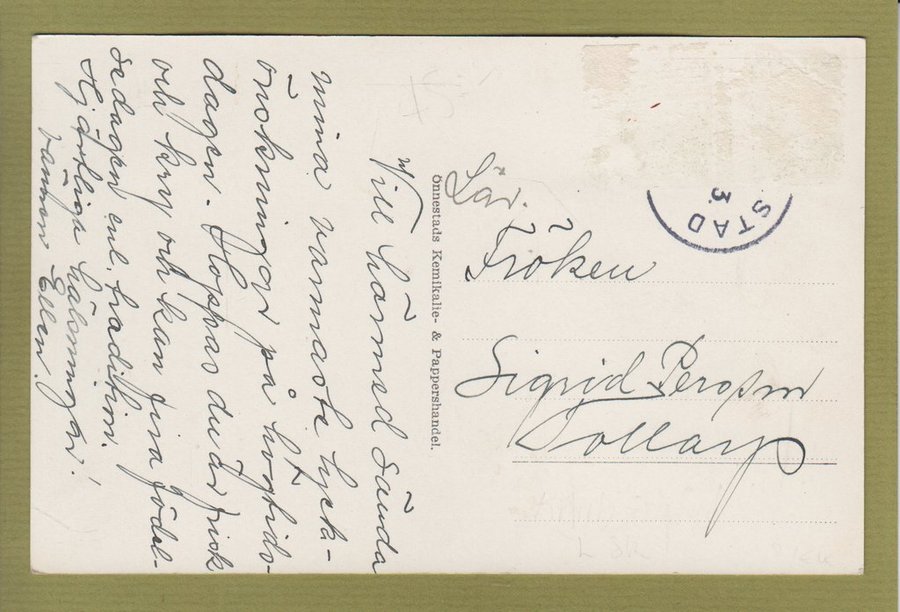 Vill härmed sända
mina varmaste lyck-
önskningar på högtids-
dagen. Hoppas du är frisk
och kry och kan fira födel-
sedagen enl. tradition.
Hjärtliga hälsningar!
vännen Ellen.
Önnestads Kemikalie- & Pappershandel.
STAD
3.
Lär.
Fröken
Sigrid Persson
Tollarp